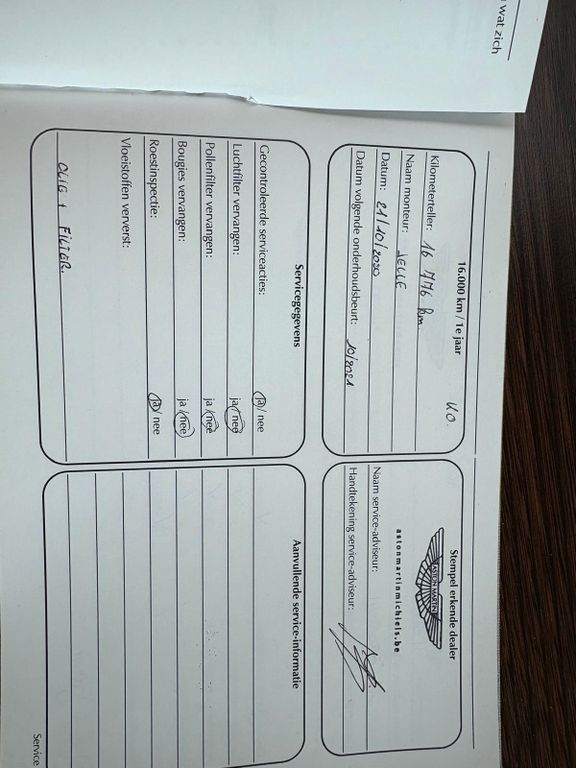 wat zich
16.000 km / 1e jaar
Kilometerteller: 16 776 km
Naam monteur: JELLE
Datum: 21/10/2020
Datum volgende onderhoudsbeurt: 10/2021
Stempel erkende dealer
ASTON MARTIN
astonmartinmichiels.be
Naam service-adviseur:
Handtekening service-adviseur:
Servicegegevens
Gecontroleerde serviceacties: ja / nee
Luchtfilter vervangen: ja / nee
Pollenfilter vervangen: ja / nee
Bougies vervangen: ja / nee
Roestinspectie: ja / nee
Vloeistoffen ververst:
OLIE + FILTER.
Aanvullende service-informatie
Service